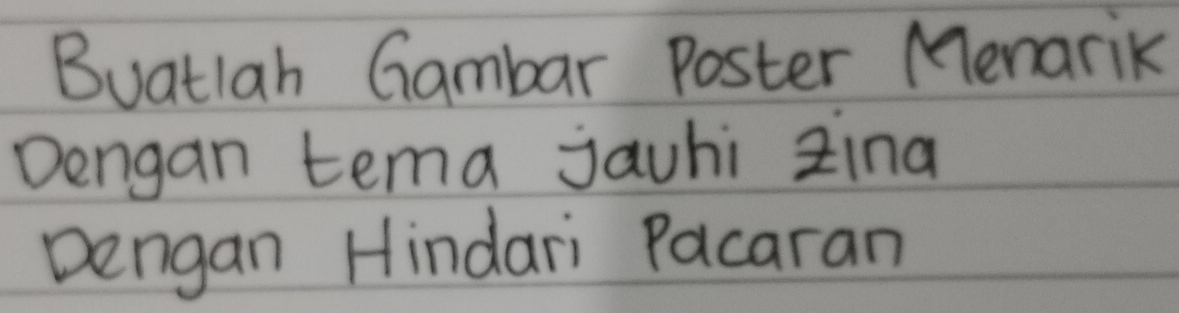 Buatlah Gambar Poster Menarik
Dengan tema jauhi zina
Dengan Hindari Pacaran